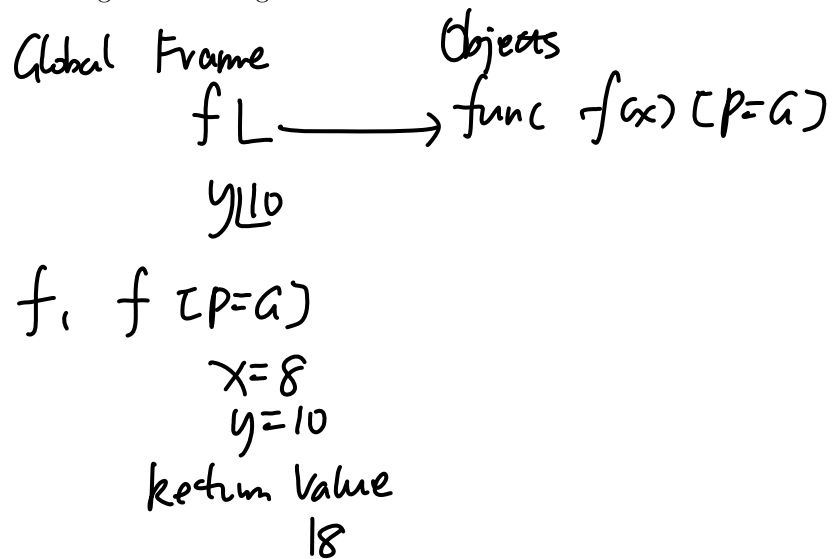 Global Frame Objects
f func f(x) [P=G]
y 10
f1 f [P=G]
x=8
y=10
Return Value
18